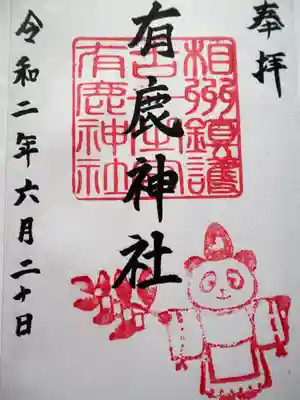 奉拝
相州鎮護
有鹿神社
有鹿神社
令和二年六月二十日